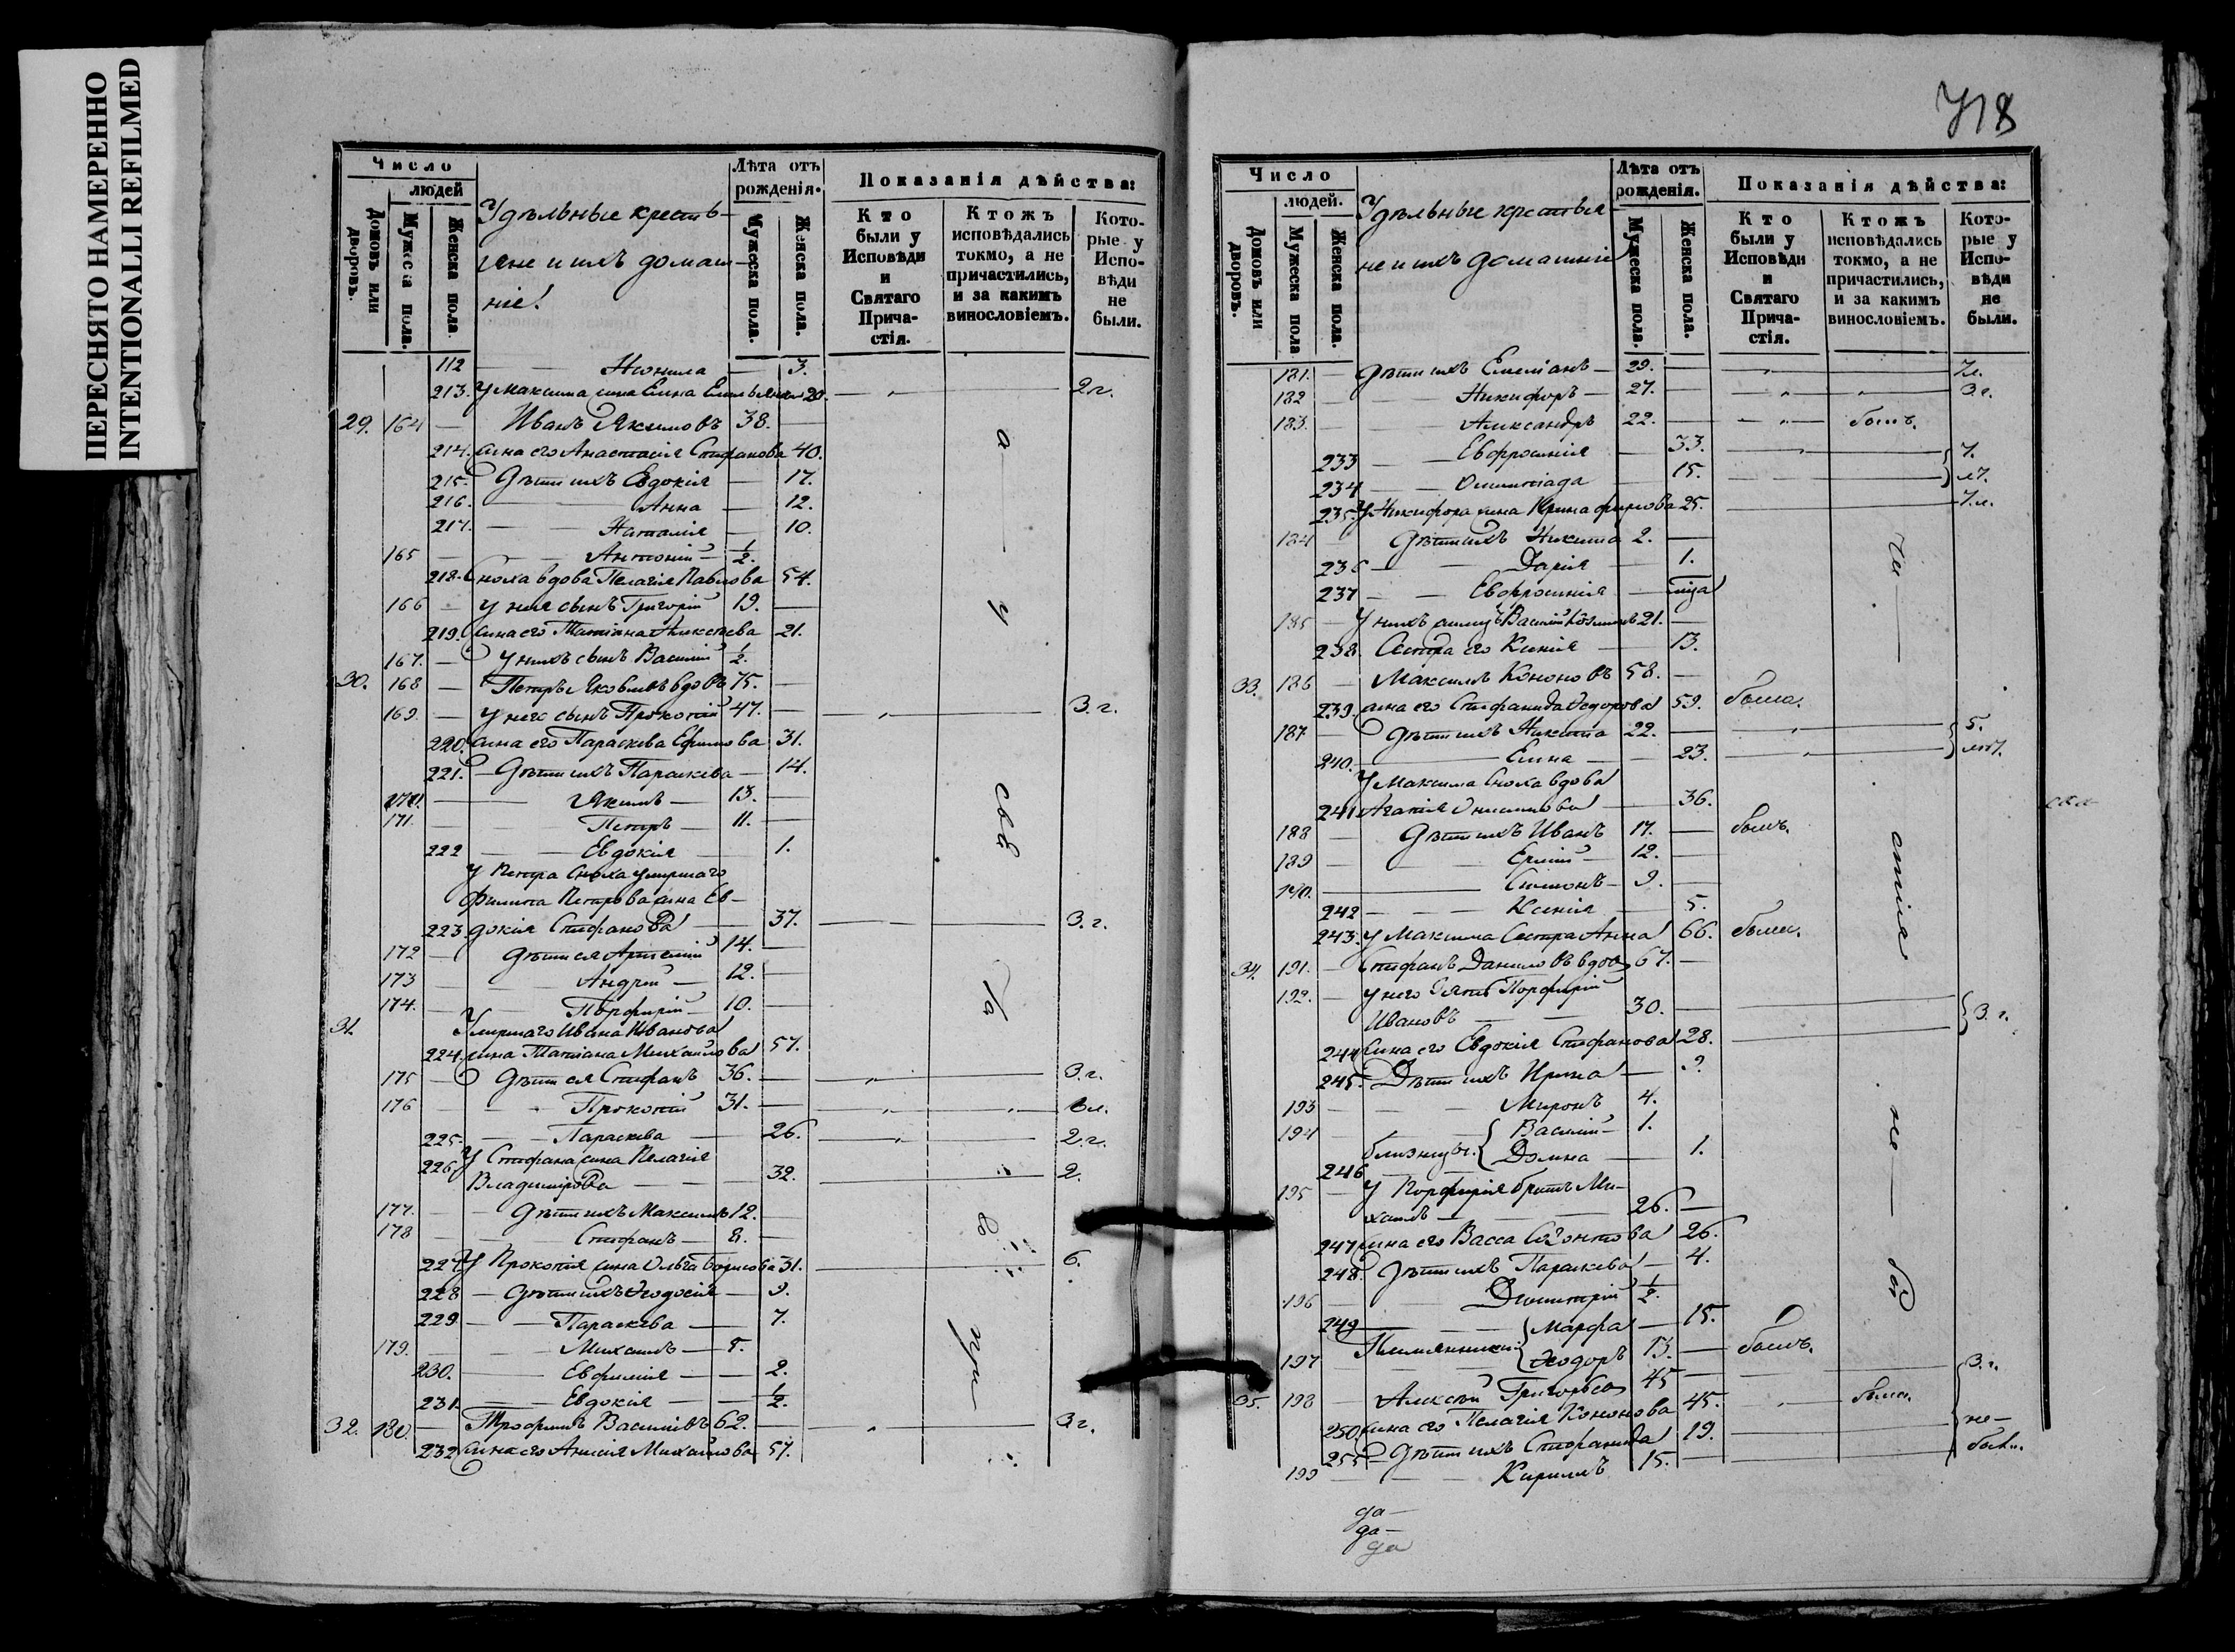 ПЕРЕСНЯТО НАМЕРЕННО
INTENTIONALLI REFILMED
Число
людей
Домовъ или дворовъ.
Мужеска пола.
Женска пола
Удѣльные крестья-
яне и ихъ домаш-
ніе!
Лѣта отъ рожденія.
Мужеска пола.
Женска пола.
Показанія дѣйства:
Кто были у Исповѣди и Святаго Прича-стія.
Ктожъ исповѣдались токмо, а не причастились, и за какимъ винословіемъ.
Кото-рые у Испо-вѣди не были.
112 Неонила 3.
213. У Максима жена Елена Емельянова 20. 2 г.
29. 164 Иванъ Якимовъ 38.
214. жена его Анастасія Стефанова 40.
215. Дѣти ихъ Евдокія 17.
216. Анна 12.
217. Наталія 10.
165 Антоній 1/2.
218. Сноха вдова Пелагія Павлова 54.
166 У нея сынъ Григорій 19.
219. жена его Татіана Алексѣева 21.
167. У нихъ сынъ Василій 1/2.
30. 168 Петръ Яковлевъ вдовъ 75.
169. У него сынъ Прокопій 47. 3. г.
220. жена его Параскева Ефимова 31.
221. Дѣти ихъ Параскева 14.
170. Якимъ 13.
171. Петръ 11.
222 Евдокія 1.
У Петра Сноха умершаго
Филипа Петрова жена Ев-
223. докія Стефанова 37. 3. г.
172 Дѣти ея Артемій 14.
173 Андрей 12.
174. Порфирій 10.
31. Умершаго Ивана Иванова
224. жена Татіана Михайлова 57.
175 Дѣти ея Стефанъ 36. 3. г.
176 Прокопій 31. 6 л.
225. Параскева 26. 2. г.
226. У Стефана жена Пелагія
Владимірова 32. 2.
177. Дѣти ихъ Максимъ 12.
178 Стефанъ 8.
227. У Прокопія жена Ольга Борисова 31. 6.
228 Дѣти ихъ Ѳеодосія 9.
229 Параскева 7.
179. Михаилъ 5.
230. Евфимія 2.
231. Евдокія 1/2.
32. 180. Трофимъ Василіевъ 62. 3 г.
232 жена его Анисія Михайлова 57.
718
Число
людей.
Домовъ или дворовъ.
Мужеска пола
Женска пола.
Удѣльные крестья
не и ихъ домашніе
Лѣта отъ рожденія.
Мужеска пола.
Женска пола.
Показанія дѣйства:
Кто были у Исповѣди и Святаго Прича-стія.
Ктожъ исповѣдались токмо, а не причастились, и за какимъ винословіемъ.
Кото-рые у Испо-вѣди не были.
181. Дѣти ихъ Емеліанъ 29. 7 л.
182 Никифоръ 27. 3 г.
183. Александръ 22. былъ.
233 Евфросинія 33. 7.
234 Олимпіада 15. л.
235. У Никифора жена Ирина 25. 7 л.
184 Дѣти ихъ Никита 2.
236 Дарія 1.
237 Евфросинія
185 У нихъ Василій 21.
238. Сестра его Ксенія 13.
33. 186 Максимъ Кононовъ 58.
239. жена его Стефанида Ѳедорова 59. была.
187 Дѣти ихъ Никита 22. 5.
240. Елена 23. лѣт.
У Максима Сноха вдова
241 Агапія Онисимова 36.
188 Дѣти ихъ Иванъ 17. былъ.
189 Ермій 12.
190. Симонъ 9.
242 Ксенія 5.
243. У Максима Сестра Анна 66. была.
34. 191. Стефанъ Даниловъ вдов 67.
192. У него Зять Порфирій
Ивановъ 30. 3. г.
244 жена его Евдокія Стефанова 28.
245. Дѣти ихъ Ирина
193 Миронъ 4.
194 Василій 1.
близнецы.
246 Домна 1.
195 У Порфирія братъ Ми-
хаилъ 26.
247 жена его Васса Созонтова 26.
248. Дѣти ихъ Параскева 4.
196 Димитрій 1/2.
249 Марфа 15.
Племянники
197 Ѳеодоръ 13. былъ.
35. 198 Алексѣй Григорьев 45 3. г.
250 жена его Пелагія Кононова 45. была.
255 Дѣти ихъ Стефанида 19. не-
199 Кирилъ 15. были.
да-
да-
да